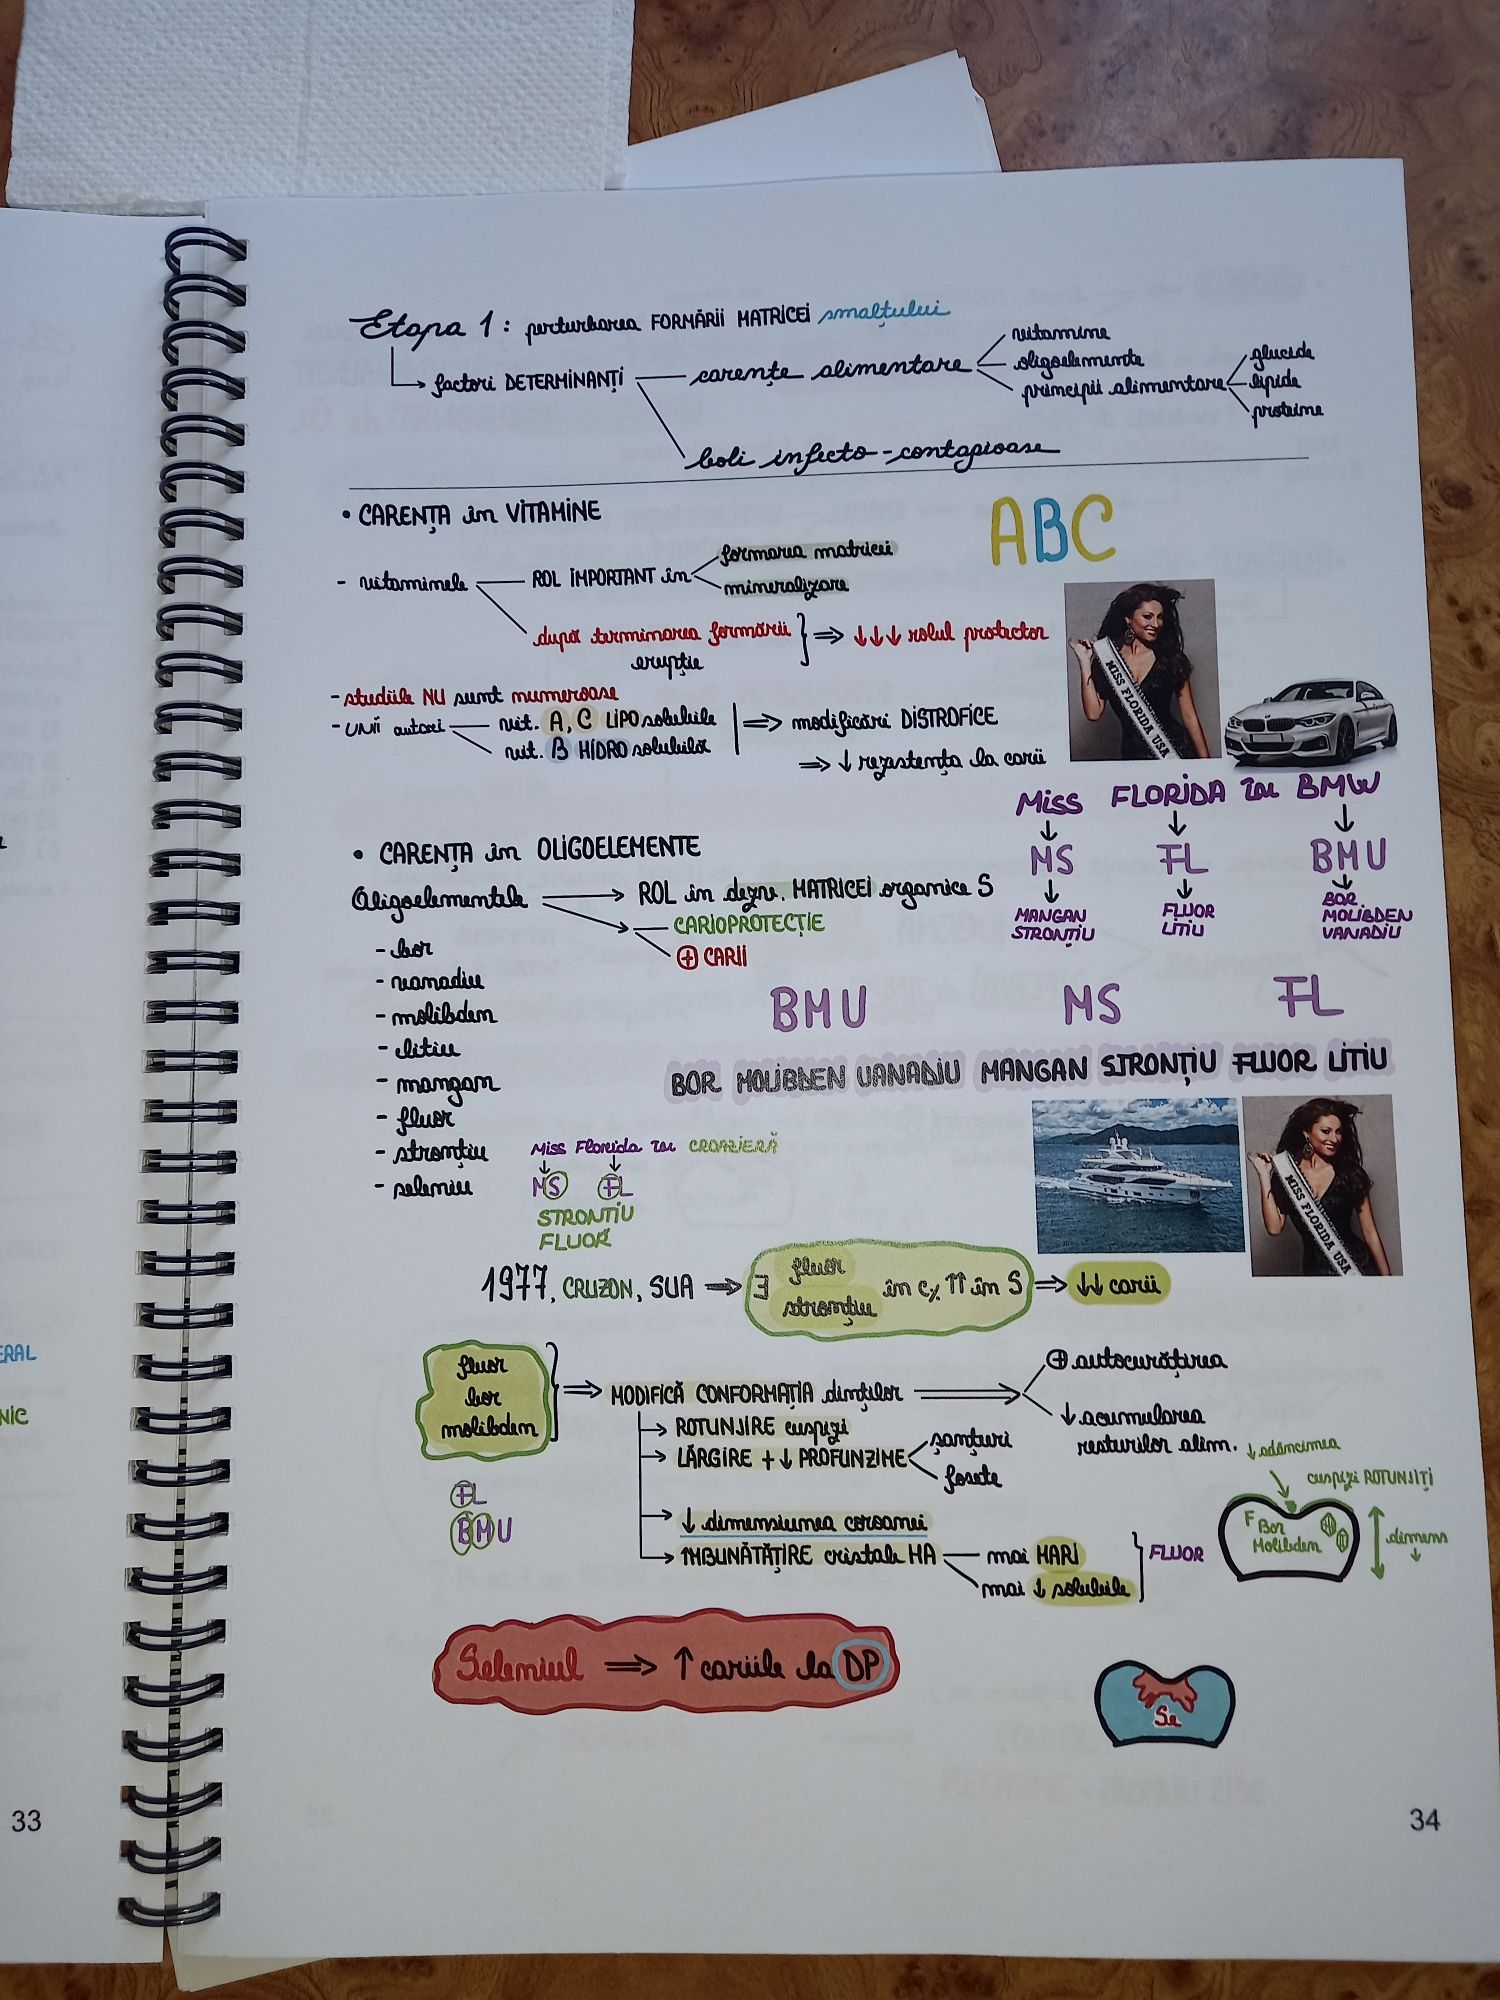 Etapa 1: perturbarea FORMĂRII MATRICEI smalțului
factori DETERMINANȚI
carențe alimentare
vitamine
oligoelemente
principii alimentare
glucide
lipide
proteine
boli infecto-contagioase
• CARENȚA în VITAMINE
ABC
- vitaminele
ROL IMPORTANT în
formarea matricii
mineralizare
după terminarea formării
erupție
⇒ ↓↓↓ rolul protector
- studiile NU sunt numeroase
- UNII autori
vit. A, C LIPOsolubile
vit. B HIDROsolubilă
⇒ modificări DISTROFICE
⇒ ↓ rezistența la carii
MISS FLORIDA USA
MISS FLORIDA în BMW
MS FL BMU
MANGAN
STRONȚIU
FLUOR
LITIU
BOR
MOLIBDEN
VANADIU
• CARENȚA în OLIGOELEMENTE
Oligoelementele → ROL în dezv. MATRICEI organice S
CARIOPROTECȚIE
⊕ CARII
- bor
- vanadiu
- molibden
- litiu
- mangan
- fluor
- stronțiu
- seleniu
BMU MS FL
BOR MOLIBDEN VANADIU MANGAN STRONȚIU FLUOR LITIU
Miss Florida în CROAZIERĂ
MS FL
STRONȚIU
FLUOR
MISS FLORIDA USA
1977, CRUZON, SUA ⇒ ∃ fluor
stronțiu
în c% ↑↑ în S ⇒ ↓↓ carii
fluor
bor
molibden
⇒ MODIFICĂ CONFORMAȚIA dinților
⊕ autocurățirea
↓ acumularea
resturilor alim.
→ ROTUNJIRE cuspizi
→ LĂRGIRE + ↓ PROFUNZIME
șanțuri
fosete
→ ↓ dimensiunea coroanei
→ ÎMBUNĂTĂȚIRE cristale HA
mai MARI
mai ↓ solubile
FLUOR
FL
BMU
↓ adâncimea
cuspizi ROTUNJIȚI
F Bor
Molibden
HA
dimens
↓
Seleniul ⇒ ↑ cariile la DP
Se
33
34
ERAL
NIC